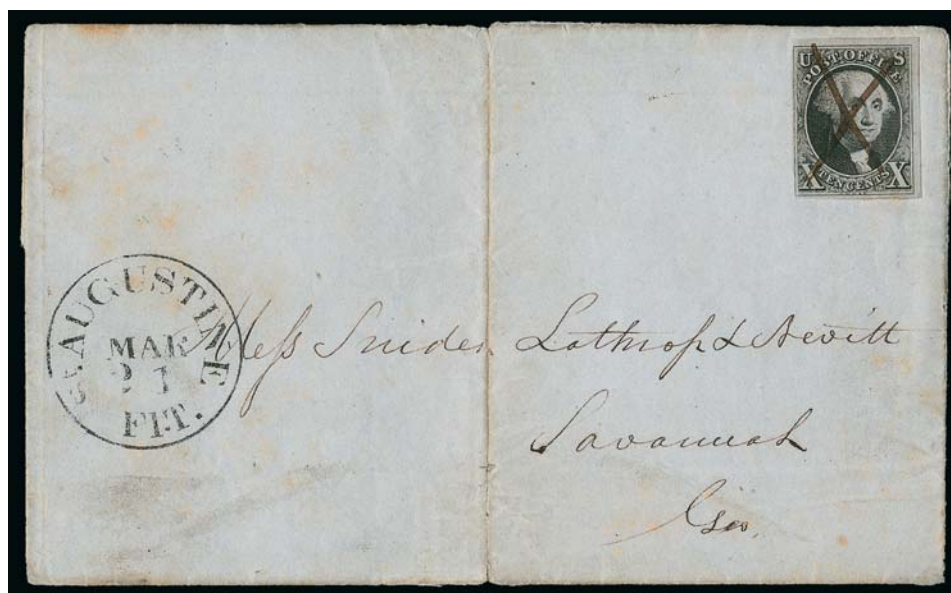 U S
POST OFFICE
X TEN CENTS X
ST. AUGUSTINE
MAR
21
FLT.
Mess Snider Lothrop & Nevitt
Savannah
Geo.